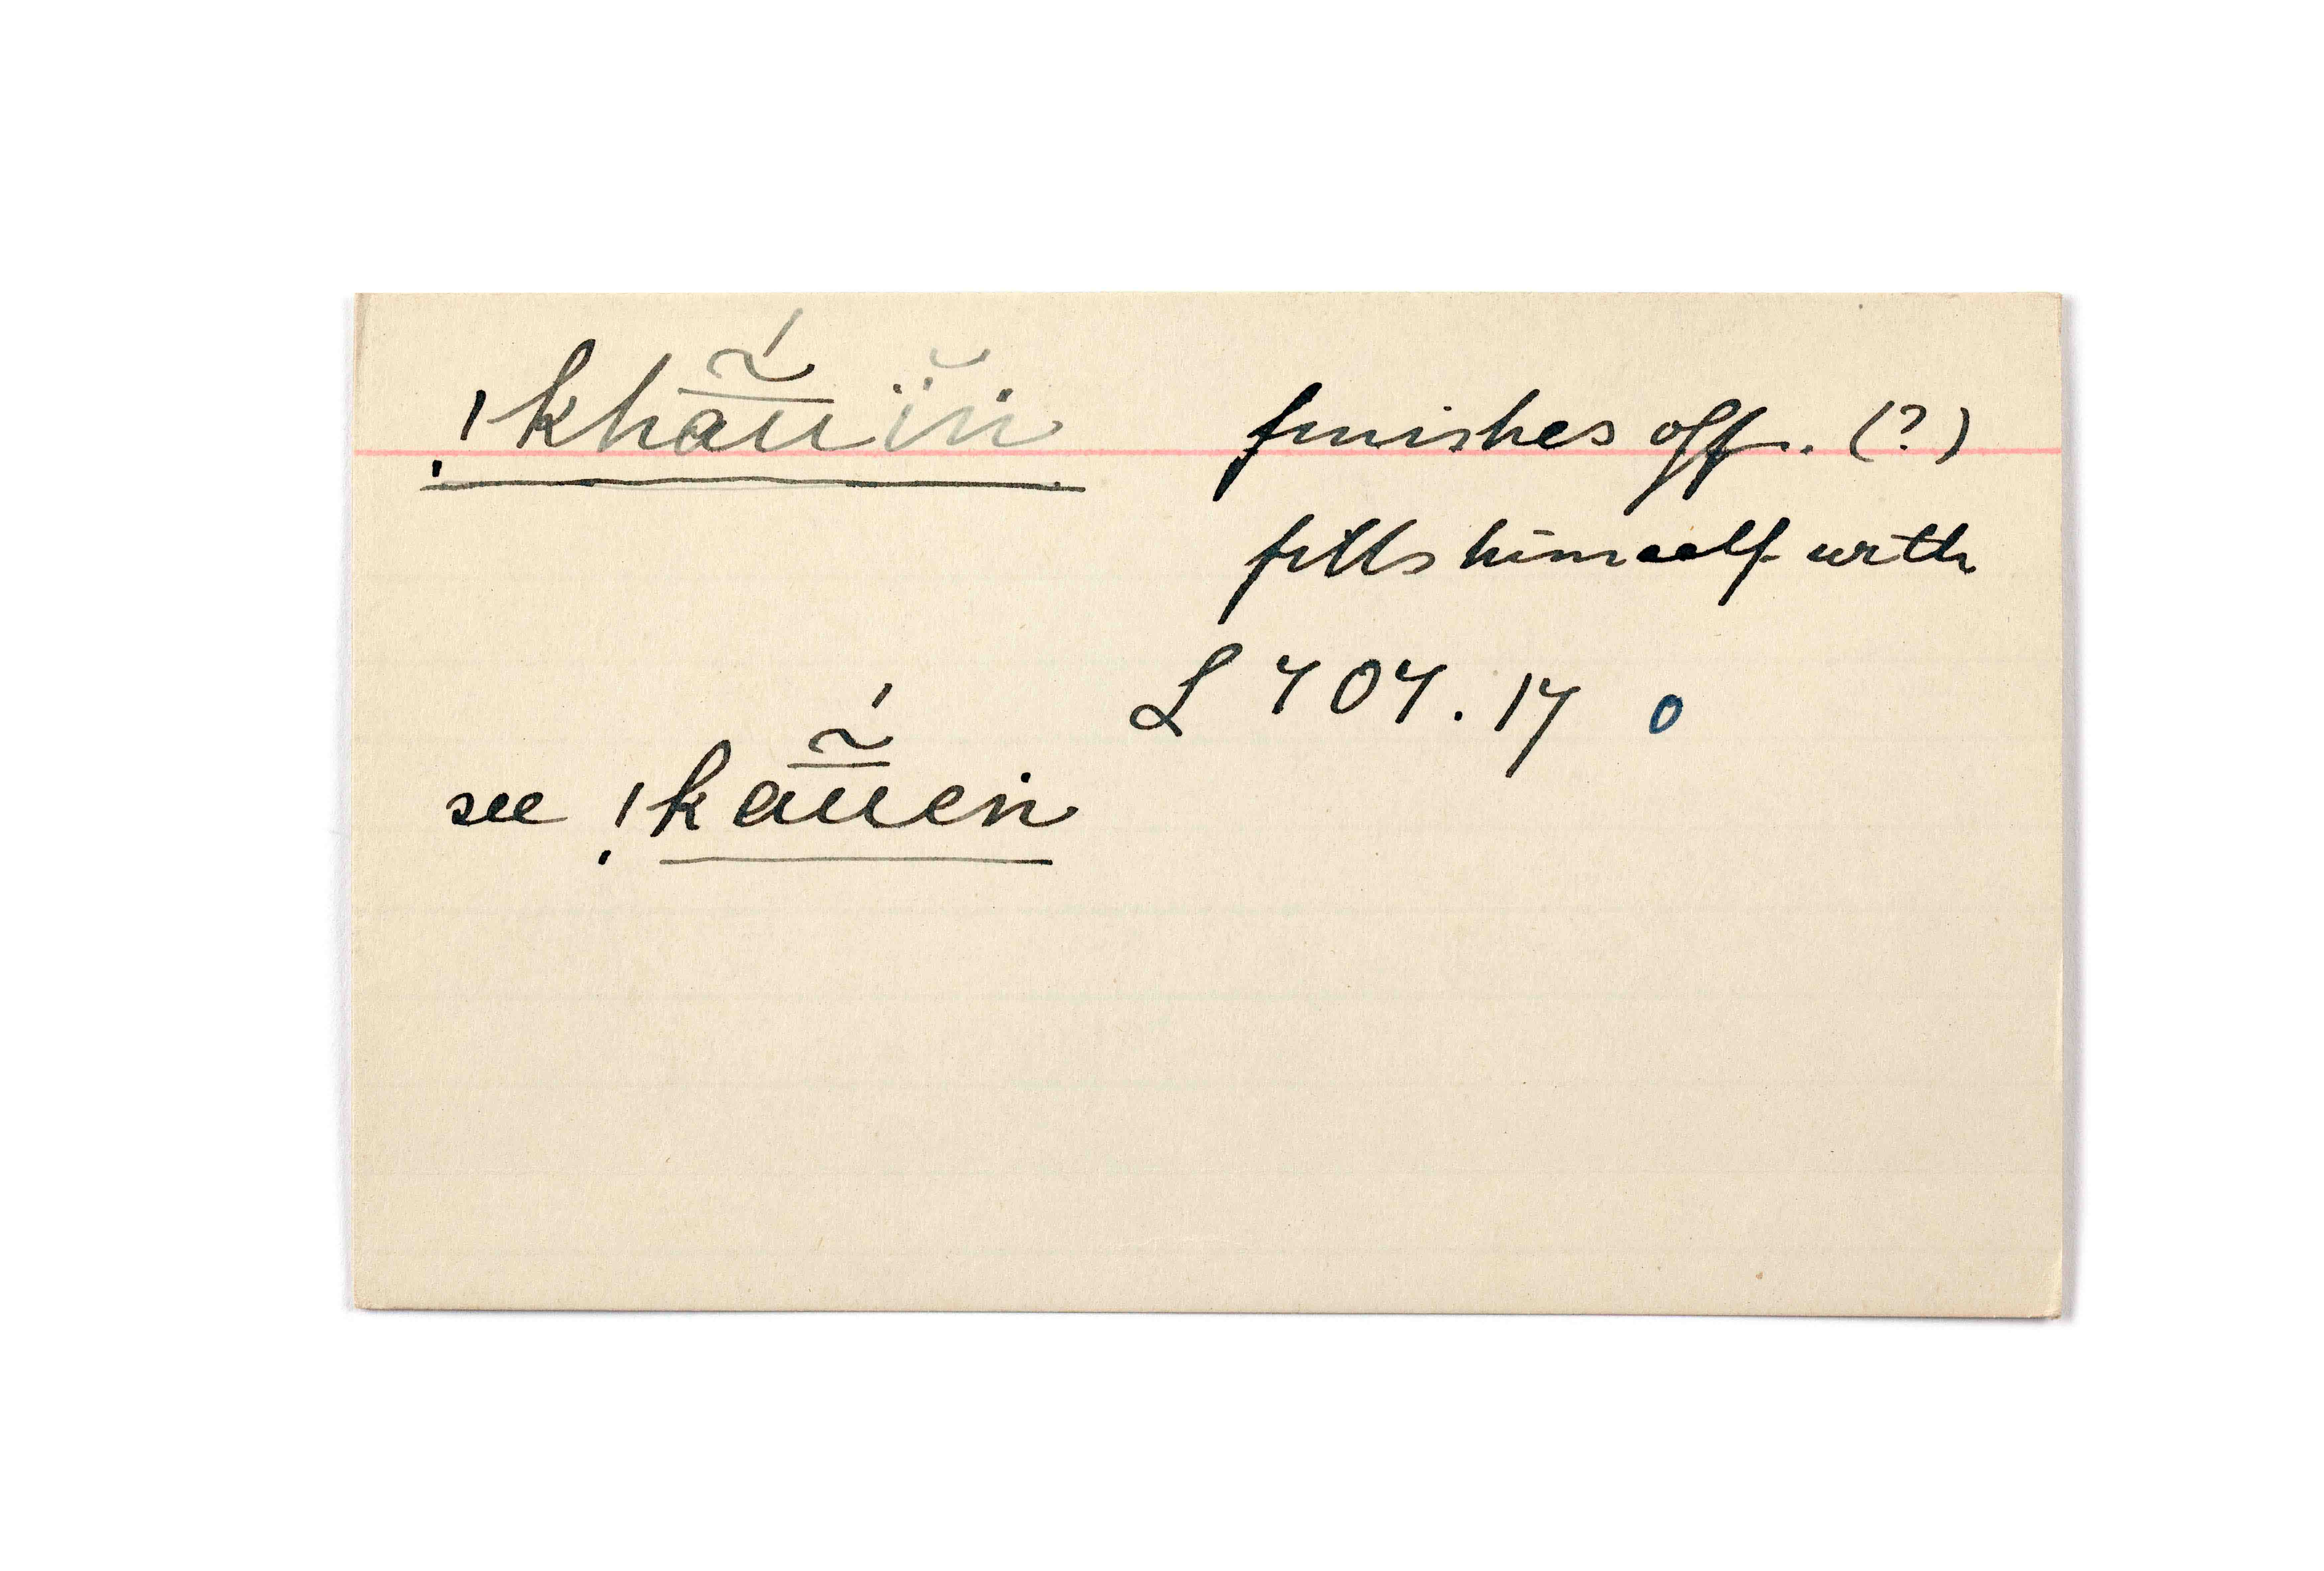 !khā̰́űĭn finishes off. (?)
fills himself with
L 404.17 o
see !kā̰́űen